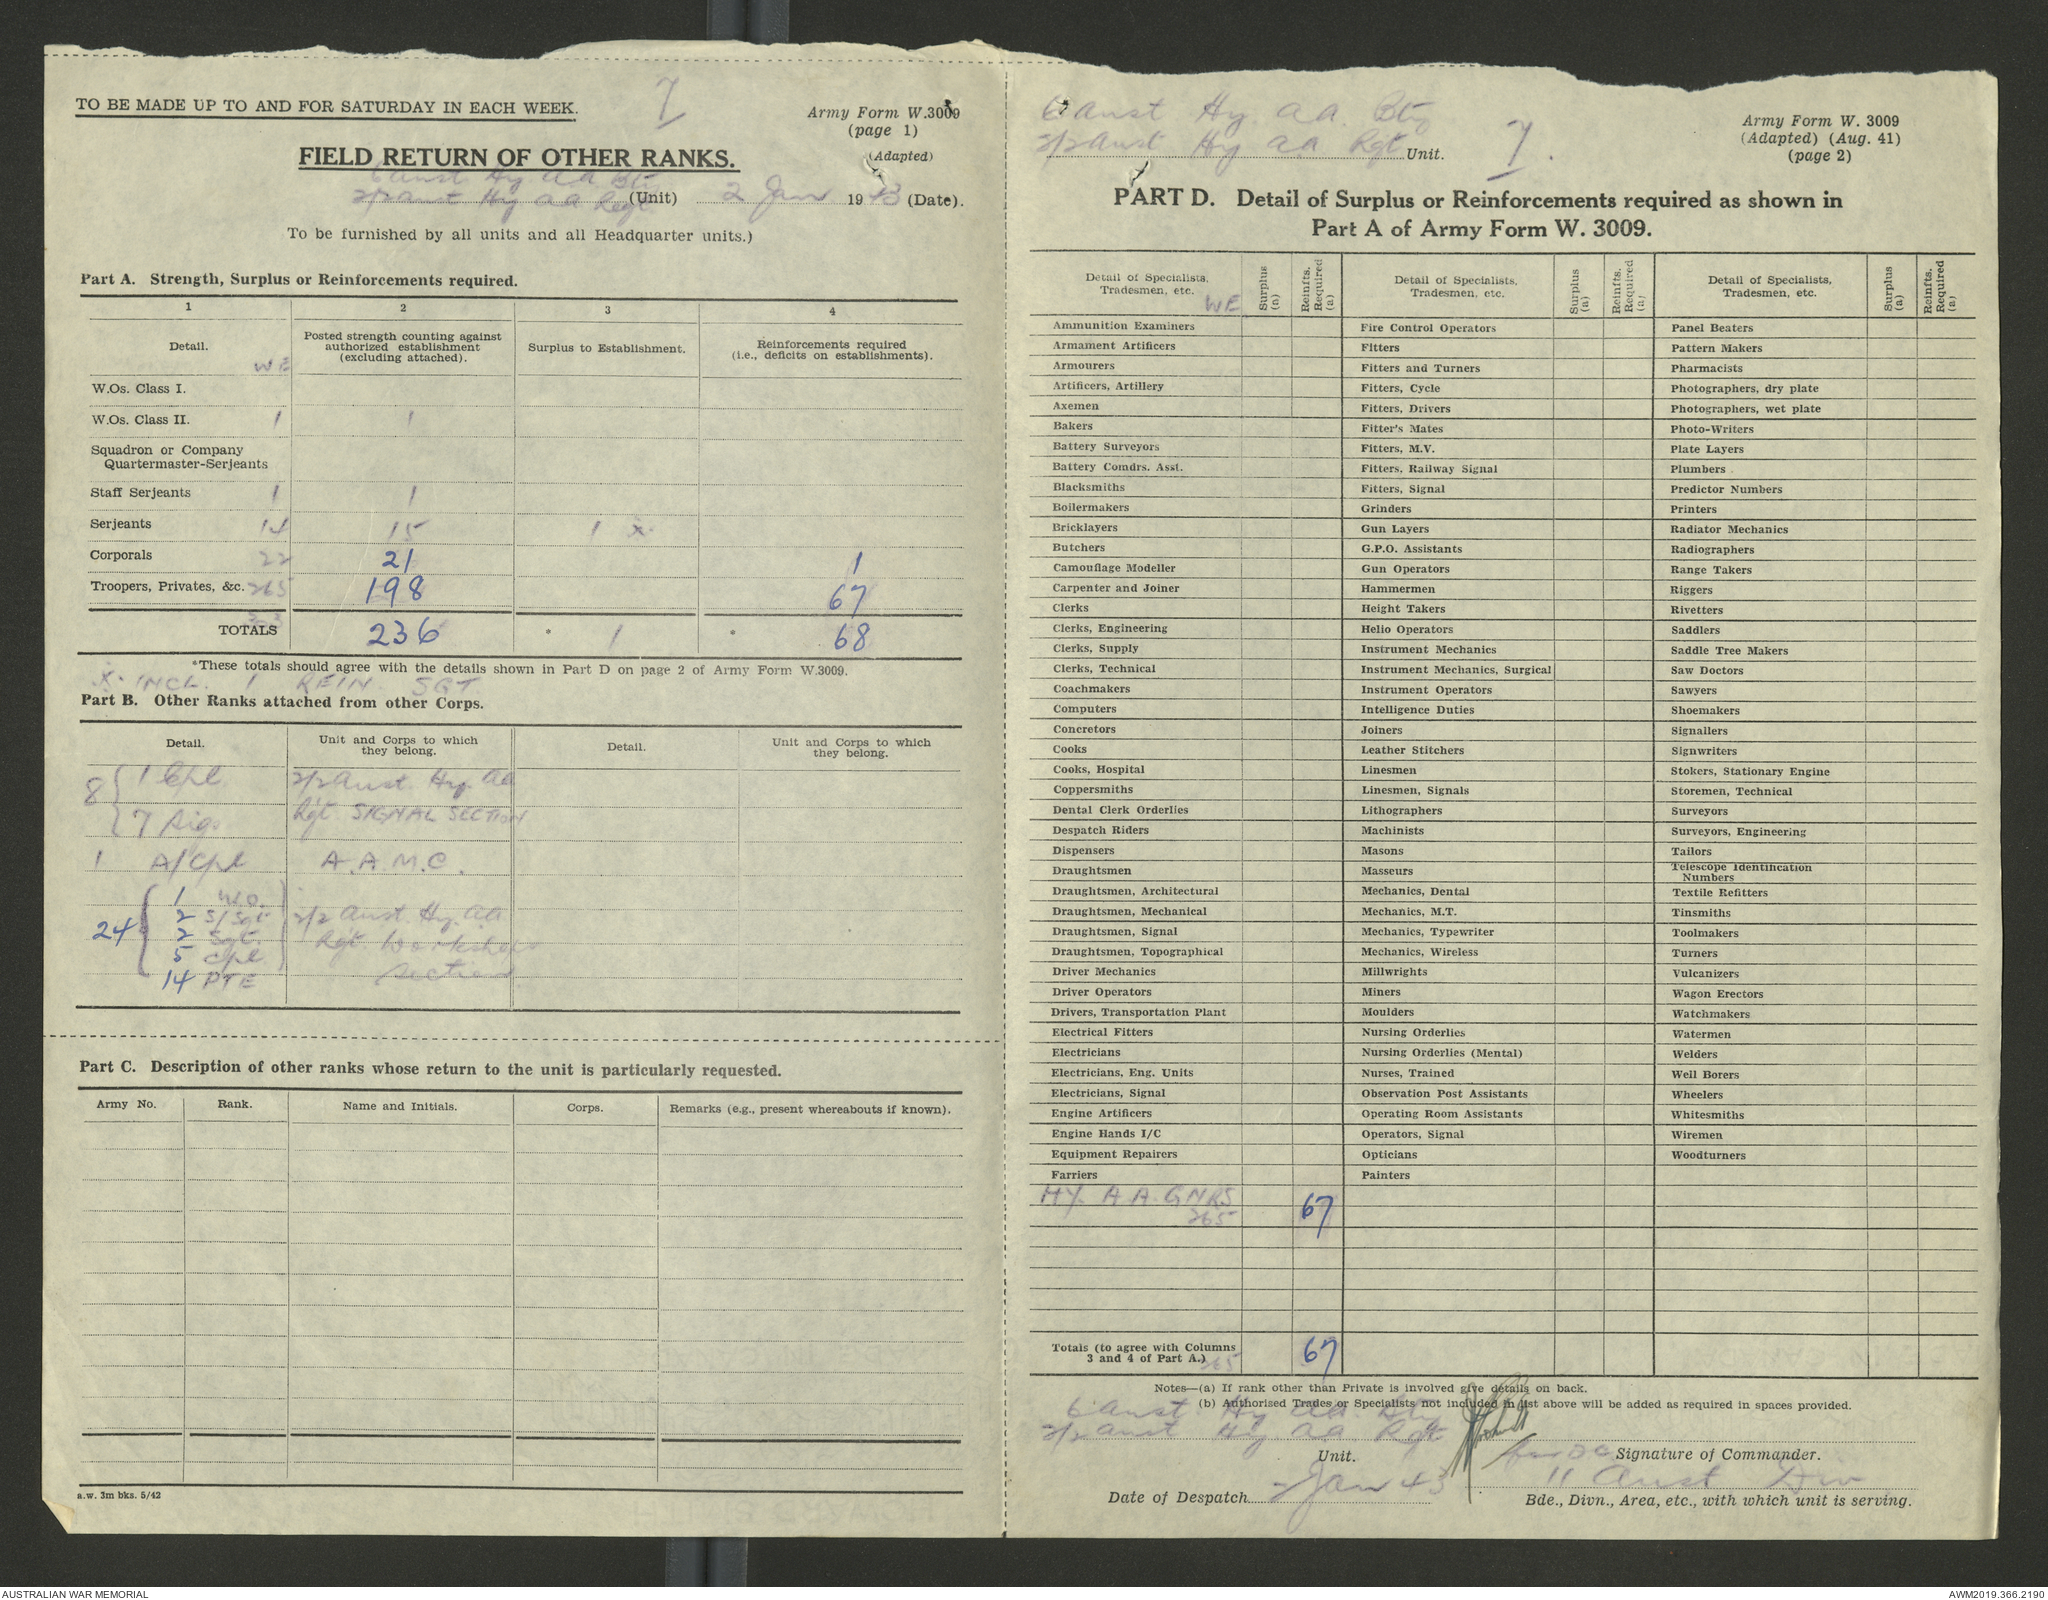 TO BE MADE UP TO AND FOR SATURDAY IN EACH WEEK.
7
Army Form W.3009
(page 1)
(Adapted)
FIELD RETURN OF OTHER RANKS.
6 Aust Hy AA Bty
2/2 Aust Hy AA Regt (Unit) 2 Jan 1943 (Date).
To be furnished by all units and all Headquarter units.)
Part A. Strength, Surplus or Reinforcements required.
1 2 3 4
Detail. WE Posted strength counting against authorized establishment (excluding attached). Surplus to Establishment. Reinforcements required (i.e., deficits on establishments).
W.Os. Class I.
W.Os. Class II. 1 1
Squadron or Company
Quartermaster-Serjeants
Staff Serjeants 1 1
Serjeants 14 15 1 x
Corporals 22 21 1
Troopers, Privates, &c. 265 198 67
303
TOTALS 236 * 1 * 68
*These totals should agree with the details shown in Part D on page 2 of Army Form W.3009.
x INCL. 1 REIN. SGT
Part B. Other Ranks attached from other Corps.
Detail. Unit and Corps to which they belong. Detail. Unit and Corps to which they belong.
8 { 1 Cpl 2/2 Aust. Hy. AA
7 Sigs Rgt SIGNAL SECTION
1 A/Cpl A.A.M.C.
24 { 1 W.O.
2 S/Sgt 2/2 Aust. Hy. AA
2 Sgt. Rgt Workshops
5 Cpl Section
14 PTE
Part C. Description of other ranks whose return to the unit is particularly requested.
Army No. Rank. Name and Initials. Corps. Remarks (e.g., present whereabouts if known).
a.w. 3m bks. 5/42
6 Aust Hy. AA. Bty
2/2 Aust Hy AA Rgt Unit. 7.
Army Form W. 3009
(Adapted) (Aug. 41)
(page 2)
PART D. Detail of Surplus or Reinforcements required as shown in
Part A of Army Form W. 3009.
Detail of Specialists, Tradesmen, etc. WE Surplus (a) Reinfts. Required (a) Detail of Specialists, Tradesmen, etc. Surplus (a) Reinfts. Required (a) Detail of Specialists, Tradesmen, etc. Surplus (a) Reinfts. Required (a)
Ammunition Examiners Fire Control Operators Panel Beaters
Armament Artificers Fitters Pattern Makers
Armourers Fitters and Turners Pharmacists
Artificers, Artillery Fitters, Cycle Photographers, dry plate
Axemen Fitters, Drivers Photographers, wet plate
Bakers Fitter's Mates Photo-Writers
Battery Surveyors Fitters, M.V. Plate Layers
Battery Comdrs. Asst. Fitters, Railway Signal Plumbers
Blacksmiths Fitters, Signal Predictor Numbers
Boilermakers Grinders Printers
Bricklayers Gun Layers Radiator Mechanics
Butchers G.P.O. Assistants Radiographers
Camouflage Modeller Gun Operators Range Takers
Carpenter and Joiner Hammermen Riggers
Clerks Height Takers Rivetters
Clerks, Engineering Helio Operators Saddlers
Clerks, Supply Instrument Mechanics Saddle Tree Makers
Clerks, Technical Instrument Mechanics, Surgical Saw Doctors
Coachmakers Instrument Operators Sawyers
Computers Intelligence Duties Shoemakers
Concretors Joiners Signallers
Cooks Leather Stitchers Signwriters
Cooks, Hospital Linesmen Stokers, Stationary Engine
Coppersmiths Linesmen, Signals Storemen, Technical
Dental Clerk Orderlies Lithographers Surveyors
Despatch Riders Machinists Surveyors, Engineering
Dispensers Masons Tailors
Draughtsmen Masseurs Telescope Identification Numbers
Draughtsmen, Architectural Mechanics, Dental Textile Refitters
Draughtsmen, Mechanical Mechanics, M.T. Tinsmiths
Draughtsmen, Signal Mechanics, Typewriter Toolmakers
Draughtsmen, Topographical Mechanics, Wireless Turners
Driver Mechanics Millwrights Vulcanizers
Driver Operators Miners Wagon Erectors
Drivers, Transportation Plant Moulders Watchmakers
Electrical Fitters Nursing Orderlies Watermen
Electricians Nursing Orderlies (Mental) Welders
Electricians, Eng. Units Nurses, Trained Well Borers
Electricians, Signal Observation Post Assistants Wheelers
Engine Artificers Operating Room Assistants Whitesmiths
Engine Hands I/C Operators, Signal Wiremen
Equipment Repairers Opticians Woodturners
Farriers Painters
HY. A A. GNRS
265 67
Totals (to agree with Columns
3 and 4 of Part A.) 265 67
Notes—(a) If rank other than Private is involved give details on back.
(b) Authorised Trades or Specialists not included in list above will be added as required in spaces provided.
6 Aust. Hy AA. Bty
2/2 Aust Hy. AA Rgt
Unit.
Signature of Commander.
11 Aust Div
Date of Despatch 2 Jan 43
Bde., Divn., Area, etc., with which unit is serving.
AUSTRALIAN WAR MEMORIAL
AWM2019.366.2190